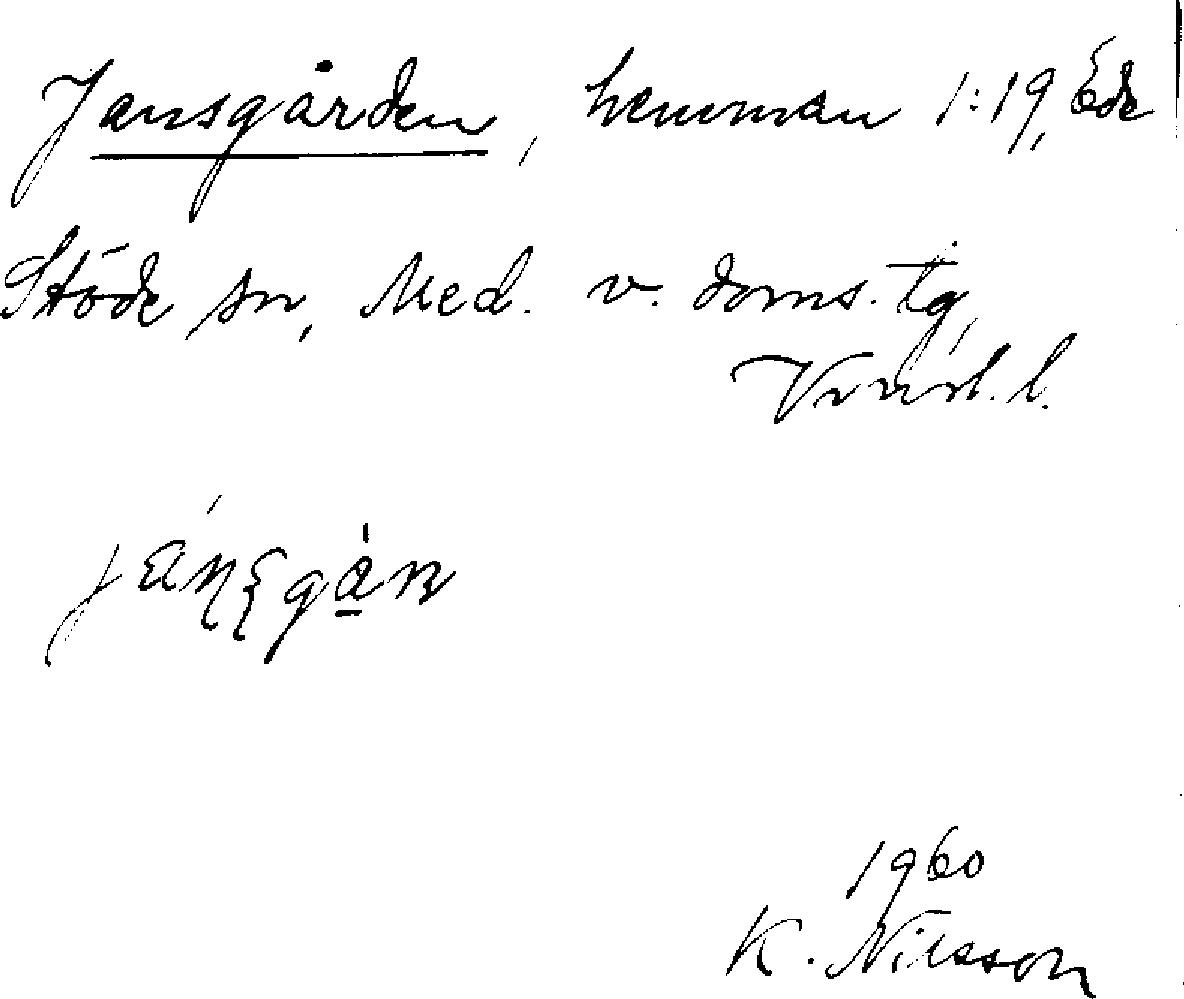 Jansgården, hemman 1:19, Ede
Stöde sn, Med. v. doms. tg,
Vrnrl. l.
1960
K. Nilsson